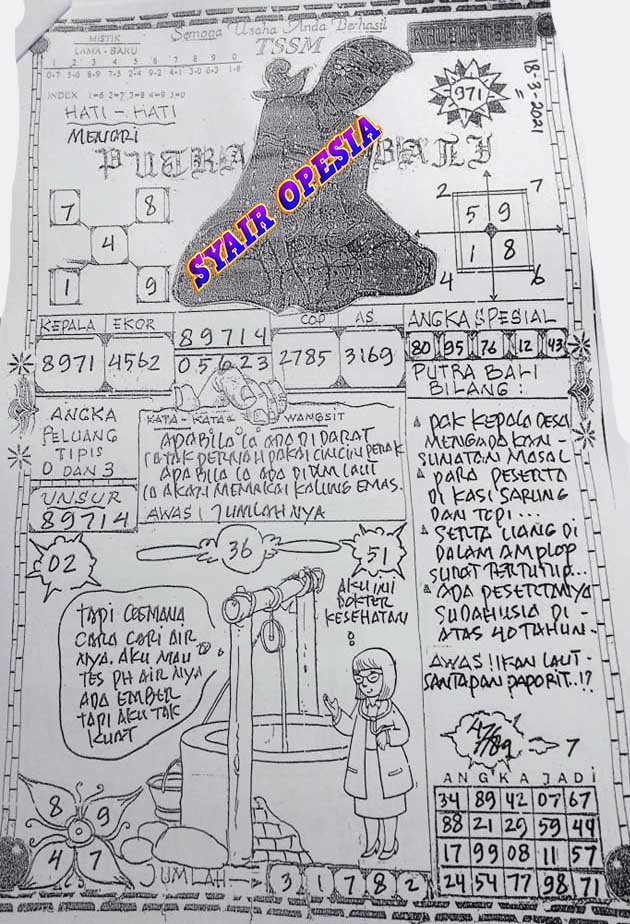 Semoga Usaha Anda Berhasil
TSSM
MISTIK
LAMA - BARU
1 2 3 4 5 6 7 8 9 0
0-7 5-6 8-9 7-5 2-4 9-2 4-1 3-0 6-3 1-8
INDEX 1=6 2=7 3=8 4=9 5=0
HATI - HATI
MENCARI
971
18-3-2021
PUTRA BALI
SYAIR OPESIA
7 8
4
1 9
2 7
5 9
1 8
4 6
KEPALA EKOR
8971 4562
89714
05623
COP AS
2785 3169
ANGKA SPESIAL
80 95 76 12 43
PUTRA BALI
BILANG :
ANGKA
PELUANG
TIPIS
0 DAN 3
UNSUR
89714
KATA - KATA WANGSIT
APABILA IA ADA DI DARAT
IA TAK PERNAH PAKAI CINCIN PERAK
APABILA IA ADA DIDLM LAUT
IA AKAN MEMAKAI KALUNG EMAS.
AWAS ! JUMLAHNYA
PAK KEPALA DESA
MENGADAKAN -
SUNATAN MASAL
PARA PESERTA
DI KASI SARUNG
DAN TOPI ...
SERTA UANG DI
DALAM AMPLOP
SURAT TERTUTUP...
ADA PESERTANYA
SUDAH USIA DI -
ATAS 40 TAHUN -
AWAS !! IKAN LAUT -
SANTAPAN PAPORIT..!?
02
36
51
AKU INI
DOKTER
KESEHATAN
TAPI GEMANA
CARA CARI AIR
NYA. AKU MAU
TES PH AIR NYA
ADA EMBER
TAPI AKU TAK
KUAT
7
ANGKA JADI
34 89 42 07 67
88 21 29 59 44
17 99 08 11 57
24 54 77 98 71
8 9
4 7
JUMLAH 3 1 7 8 2